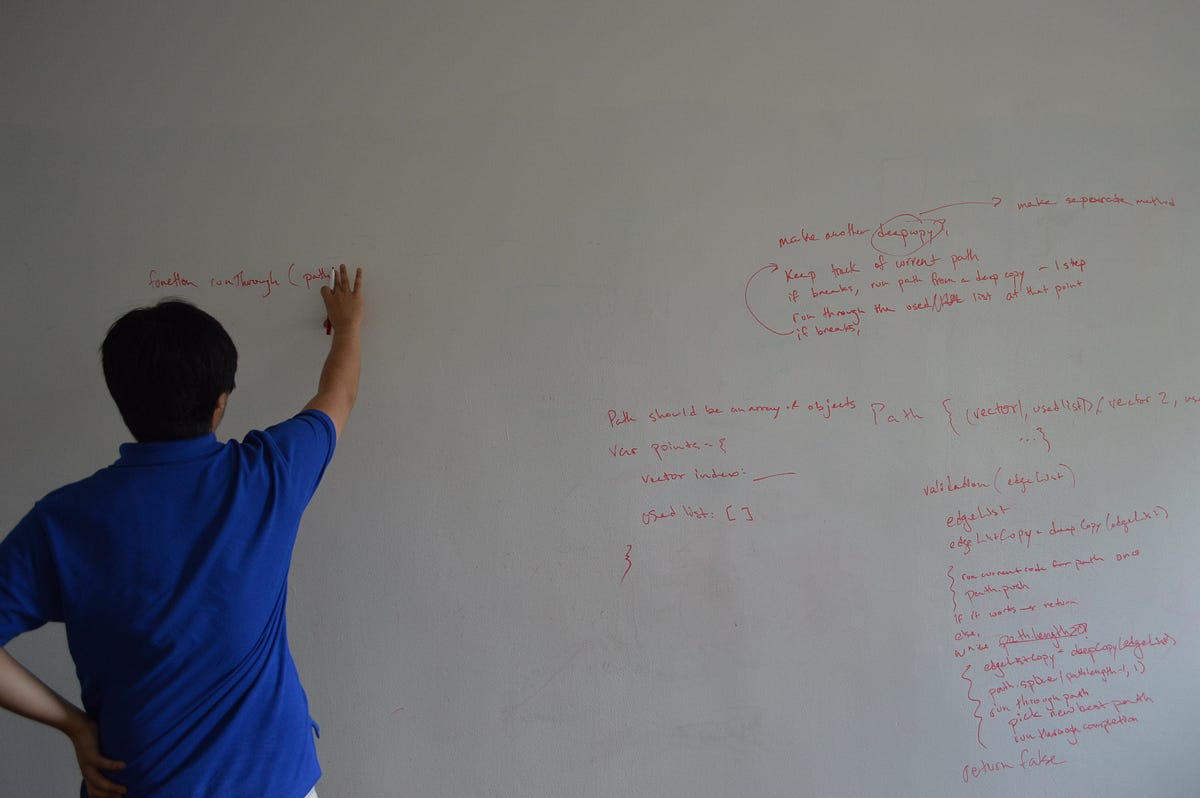 function runThrough (path
make another deepcopy,
make separate method
Keep track of current path
if breaks, run path from a deep copy - 1 step
run through the used list at that point
if breaks,
Path should be an array of objects
Path { (vector1, usedlist1), (vector 2, us
...}
var points = {
vector index: __
Used list: [ ]
}
validation (edgeList)
edgeList
edgeListCopy = deepCopy (edgeList)
{ run current code for path once
path.push
if it works → return
else,
while path.length>0
{ edgeListCopy = deepCopy(edgeList)
path.splice(path.length-1, 1)
run through path
pick new best path
run through completion
return false